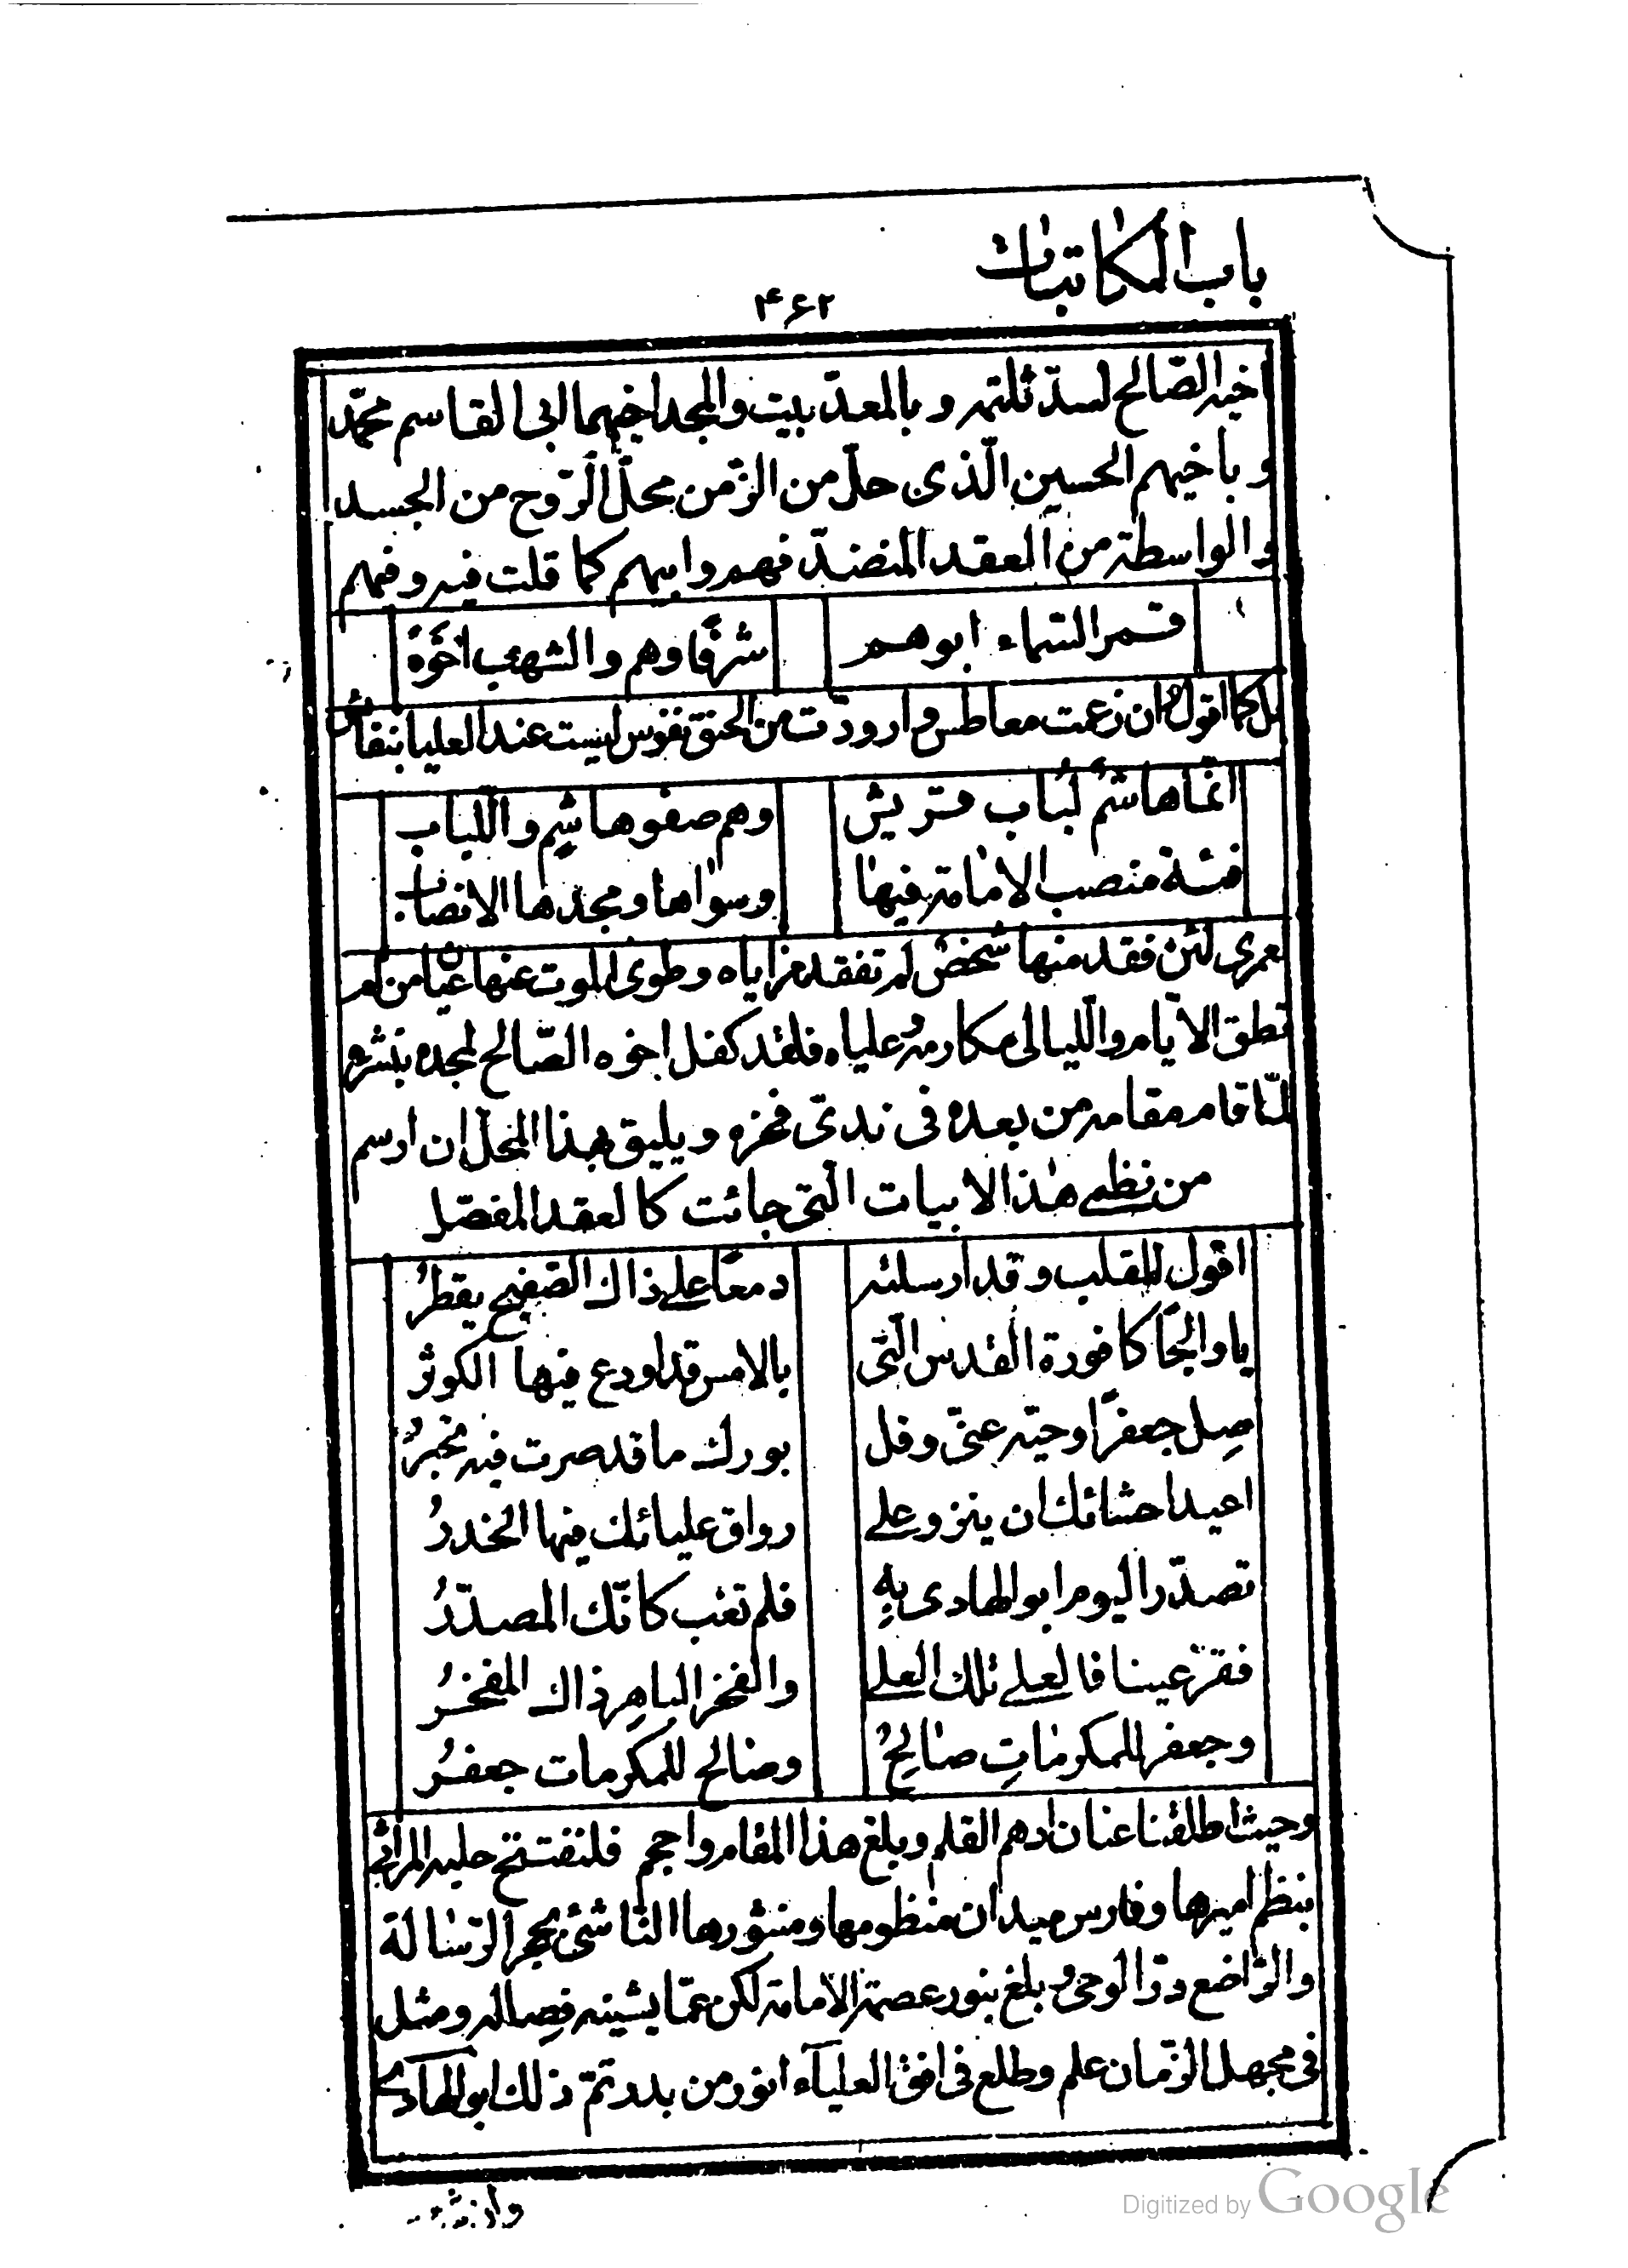 باب المكاتبات
۴۶۲
اخيه الصّالح لسدّ ثلمته و بالمعدّ بيت والمجد اخيهما ابى القاسم محمّد
و باخيهم الحسين الّذى حلّ من الزّمن محلّ الرّوح من الجسد
والواسطة من العقد المنضّد فهم وابيهم كما قلت فيه وفيهم
قمر السّماء ابوهم شرفًا وهم والشّهب اخوة
بل كما اقول وان زعمت معاطس وارودّت من الحنق نفوس ليست عند العليا بنفائس
انّما هاشم لُباب قريش وهم صفو هاشمٍ واللّباب
فئة منصب الامامة فيها وسواها ومجدها الانصاب
لعمرى لئن فقد منها شخص لم تفقد مزاياه وطوى الموت عنها عيانًا من لم
تطق الايّام واللّيالى مكارمه وعلياه فلقد كفل اخوه الصّالح لمجده بنشره
لمّا قام مقامه من بعده فى ندىّ فخره ويليق بهذا المحلّ ان ارسم
من نظمى هذا الابيات الّتى جائت كالعقد المفصّل
اقول للقلب وقد ارسلته دمعًا على ذاك الصّفيح يقطرُ
يا والجًا كافورة القدس الّتى بالامس قد اودع فيها الكوثر
صِل جعفرًا وحيّه عنّى وقل بورك ما قد صرت فيه مخبرُ
اعيد احشائك ان ينزو على رواق عليائك فيها الخدرُ
تصدّر اليوم ابو الهادى بِهِ فلم تغب كانّك المصدّرُ
فقرّ عينا فالعلى تلك العلى والفخر الباهِر ذاك المفخرُ
وجعفر للمكرماتِ صالحٌ وصالح للمكرمات جعفرُ
وحيث اطلقنا عنان ادهم القلم وبلغ هذا المقام واحجم فلنفتتح حلبه المراثى
بنظم اميرها وفارس ميدان منظومها ومنثورها النّاشئ بحجر الرّسالة
والرّاضع درّ الوحى وبلغ بنور عصمة الامامة لكن عمّا يشينه فصاله ومثل
فى مجهل الزّمان علم وطلع فى افق العلياء انور من بدر تمّ ذلك ابو الهادى
Digitized by Google